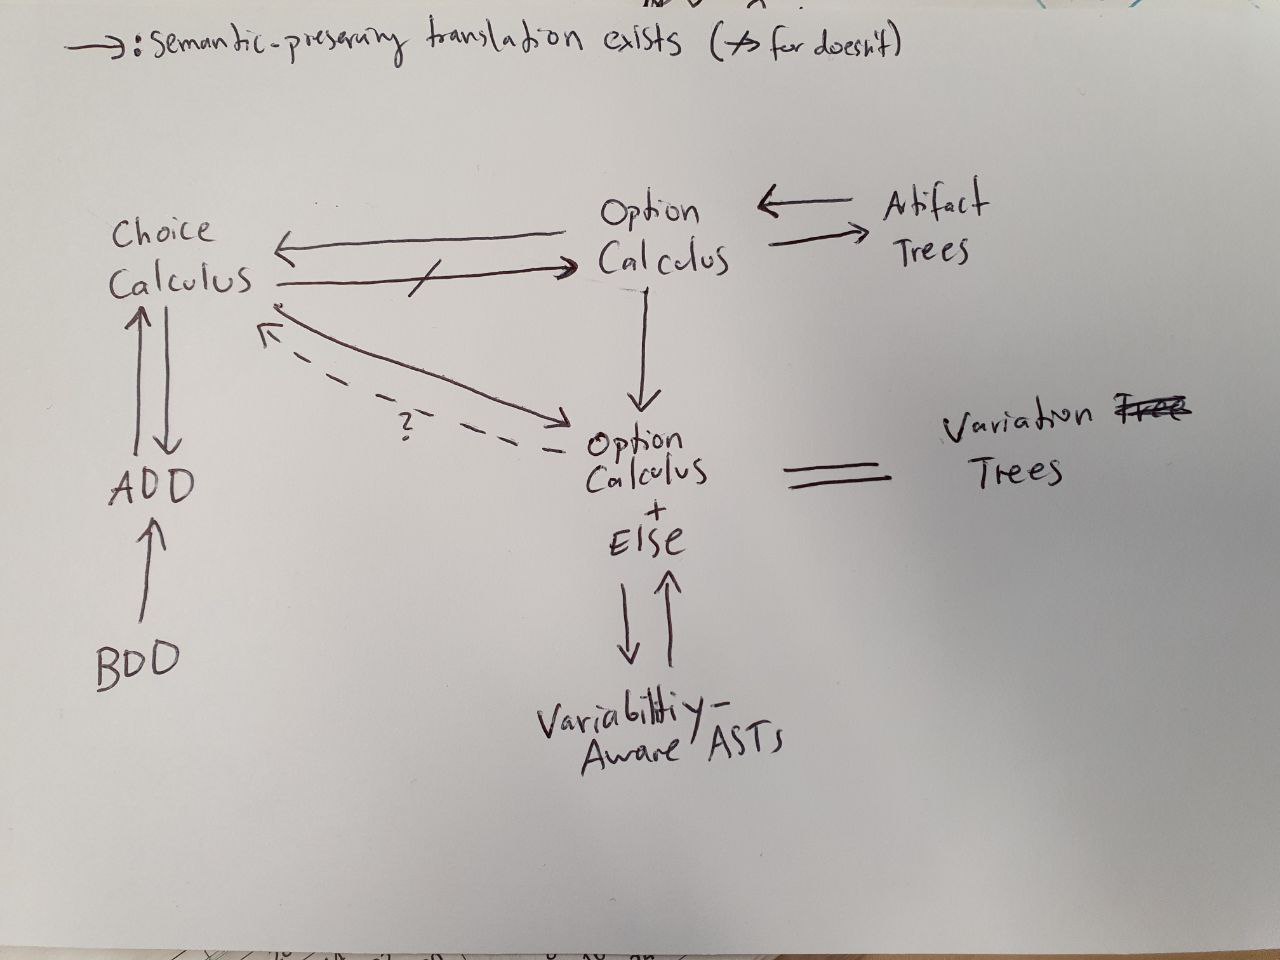 →: semantic-preserving translation exists (↛ for doesn't)
Choice
Calculus
Option
Calculus
Artifact
Trees
?
Option
Calculus
+
Else
Variation
Trees
ADD
BDD
Variabilitiy-
Aware ASTs